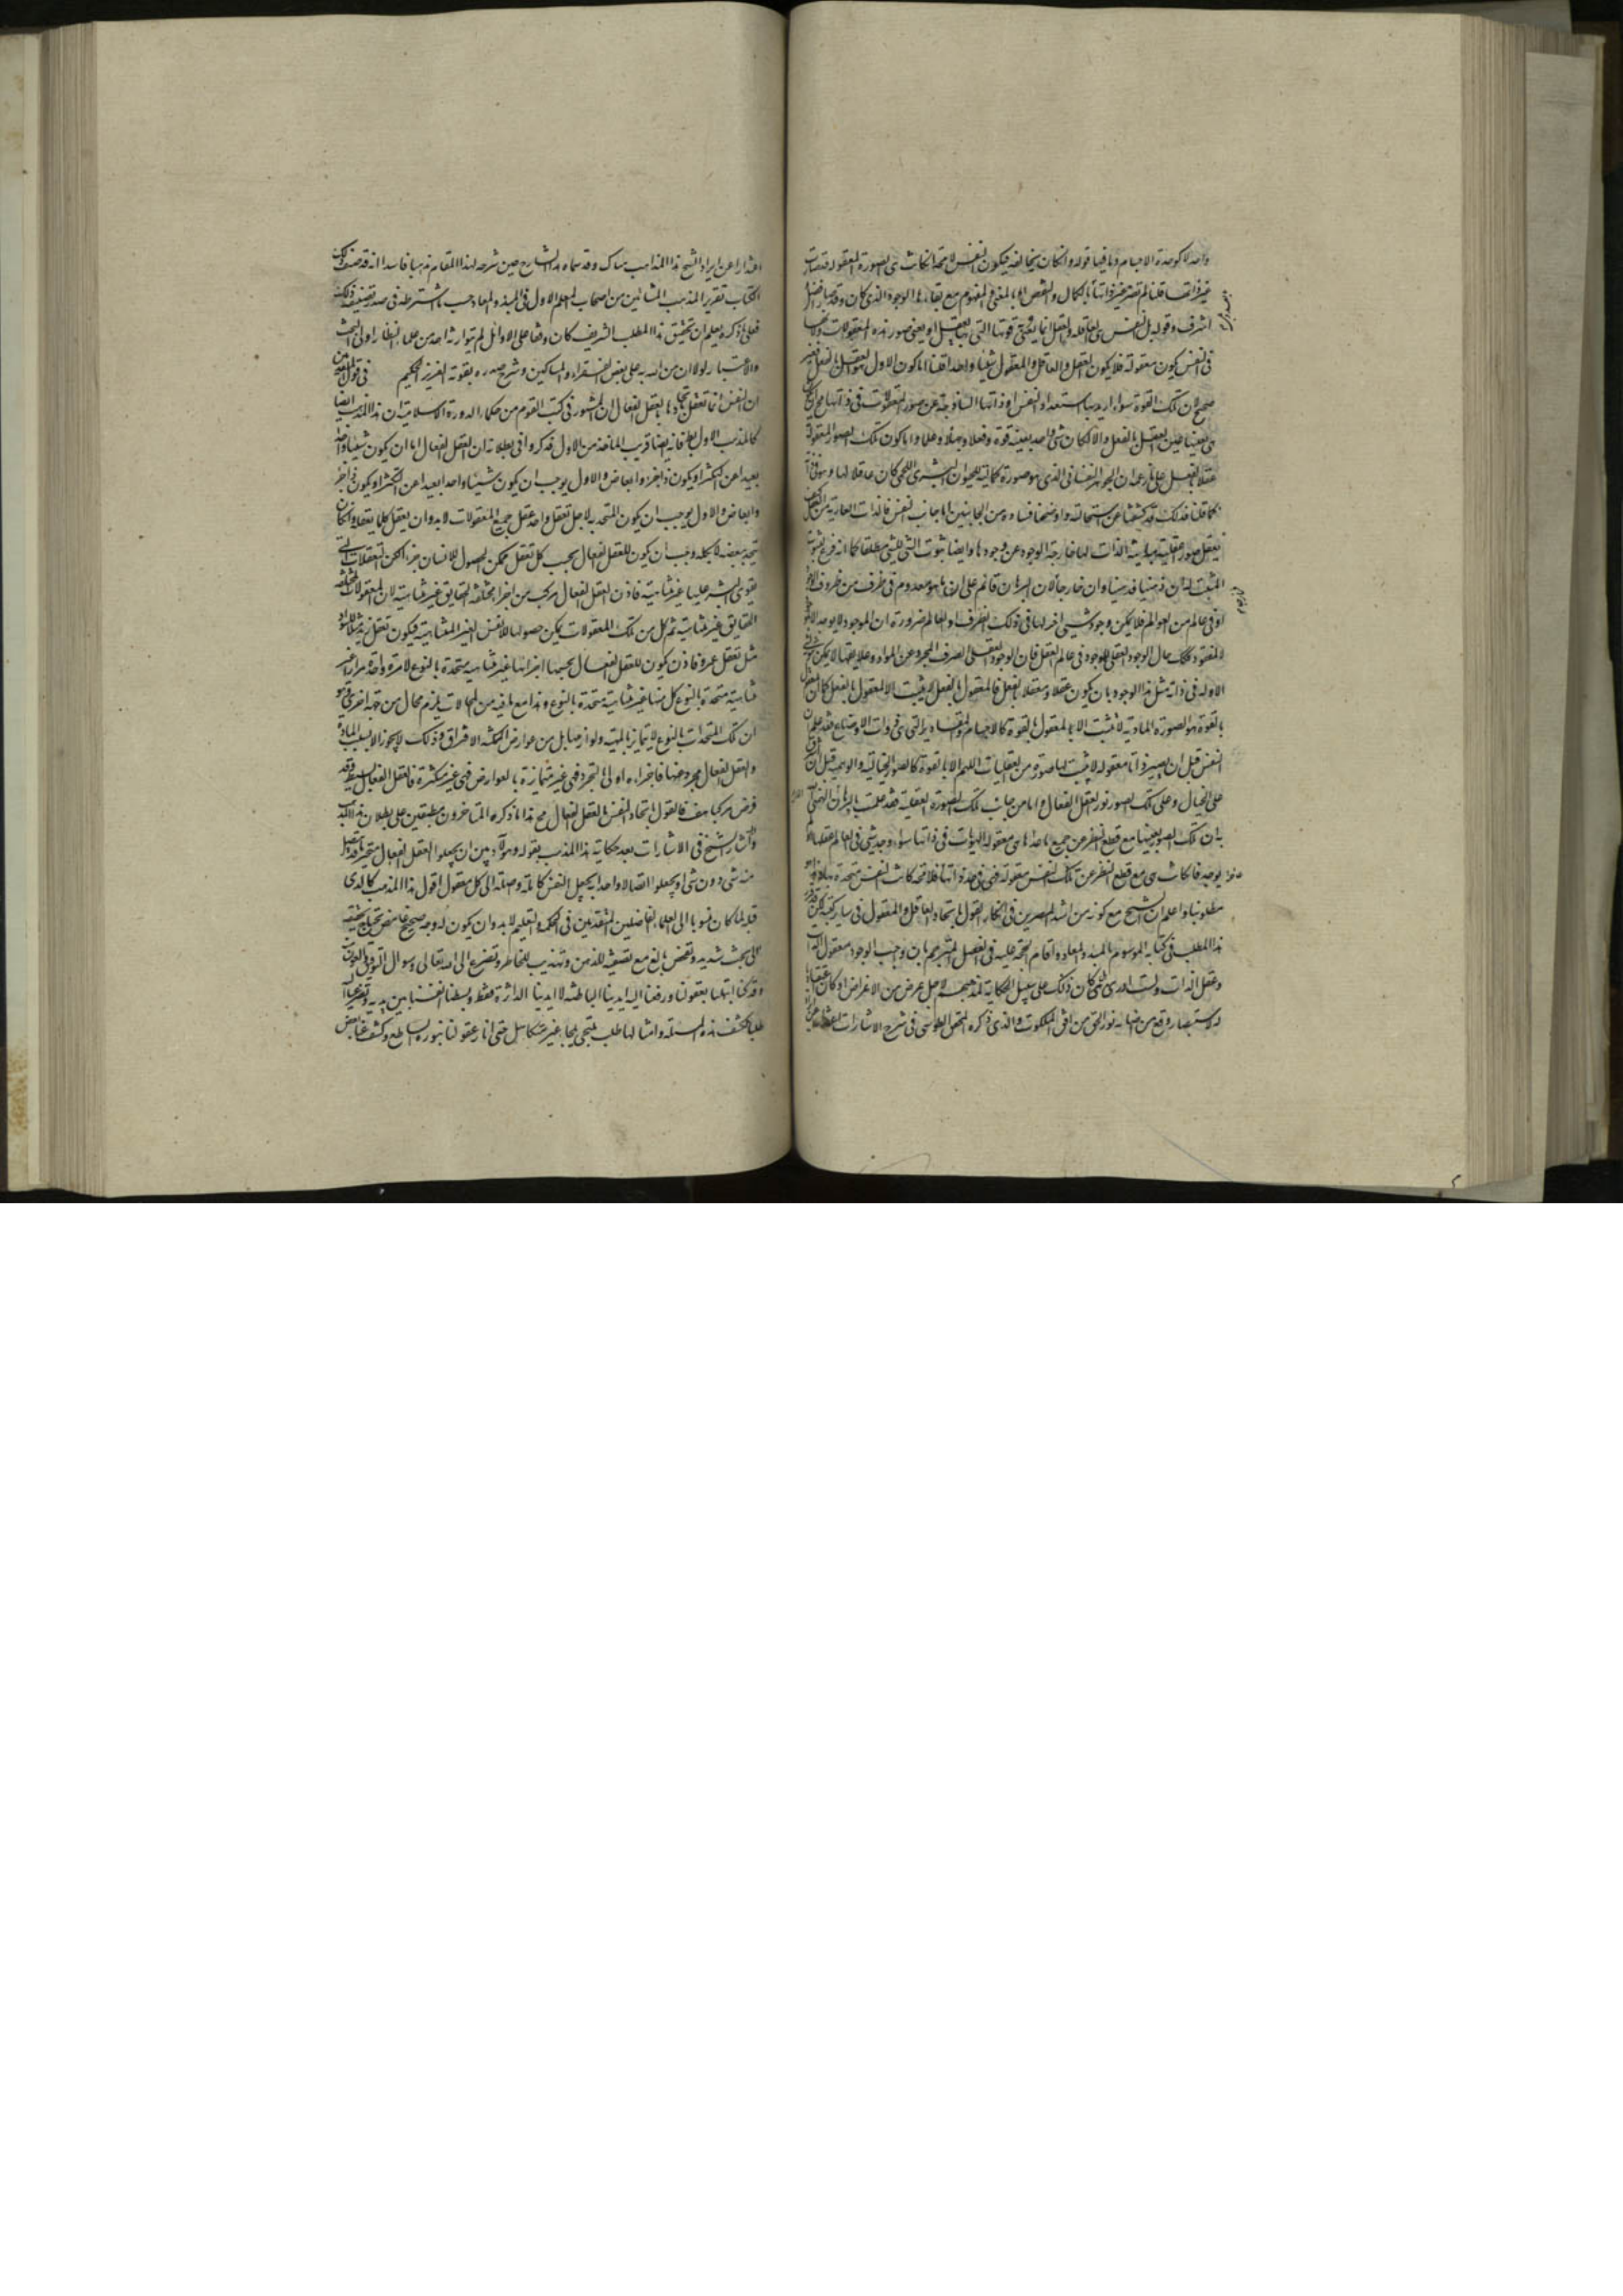 واحد لا كوحدة الاجسام وما فيها قوله وان كان يخالفه فيكون النفس لا محة ان كانت هى الصورة المعقولة قد صارت
غير ذاتها قلنا لم تصر غير ذاتها بالكمال والنقص او بالمعنى والمفهوم مع بقاء الوجود الذى كان وقد صار افضل
اشرف وقوله بل النفس هى العاقلة والعقل انما يعنى به قوتها التى بها يعقل او يعنى صور هذه المعقولات ولانها
فى النفس يكون معقولة فلا يكون العقل والعاقل والمعقول شيئا واحدا قلنا اما كون الاول هو العقل بالفعل فغير
صحيح لان تلك القوة سواء اريد بها استعداد النفس او ذاتها الساذجة عن صور المعقولات فهى فى ذاتها
هى بعينها حين العقل بالفعل والا لكان شى واحد بعينه قوة وفعلا وجهلا وعلما واما كون تلك الصور المعقولة
عقلا بالفعل على زعمه ان الجوهر النفسانى الذى هو صورة كمالية للحيوان البشرى اللحمى كان عاقلا لها وهو فى
كما قلنا فذلك قد كشفنا عن استحالته واوضحنا فساده من الجانبين اما جانب النفس فالذات العارية من العقل
تعقل صور عقلية مباينة الذات لها خارجة الوجود عن وجودها وايضا ثبوت الشى للشى مطلقا كما انه فرع ثبوت
المثبت له ان ذهنيا فذهنيا وان خارجا لان البرهان قائم على ان ما هو معدوم فى ظرف من ظروف
او فى عالم من العوالم فلا يمكن وجود شيئ اخر لها فى ذلك الظرف او العالم ضرورة ان الموجود لا يوجد الا
لا لمفقود فكذلك حال الوجود العقلى للموجود فى عالم العقل فان الوجود العقلى الصرف المجرد عن المواد وعلايقها لا يمكن
الا وله فى ذاته مثل هذا الوجود بان يكون عقلا ومعقولا بالفعل فالمعقول بالفعل لا يثبت الا لمعقول بالفعل كما ان
بالقوة هو الصورة المادية لا تثبت الا لمعقول بالقوة كالاجسام والمقادير التى هى ذوات الاوضاع فقد علم ان
النفس قبل ان تصير ذاتا معقولة لا يثبت لها صورة من العقليات اللهم الا بالقوة كالصور الخيالية والوهمية قبل ان
على الخيال وعلى تلك الصور نور العقل الفعال واما من جانب تلك الصورة العقلية فقد علمت بالبرهان
به ان تلك الصور بعينها مع قطع النظر عن جميع ما عداها هى معقولة الهويات فى ذاتها سواء وجد شى فى العالم عقلها
يوجد فاذا كانت هى مع قطع النظر عن تلك النفس معقولة فهى فى حد ذاتها عاقلة كانت النفس متحدة بها
مطلوبنا واعلم ان الشيخ مع كونه من اشد المصرين فى انكار القول باتحاد العاقل والمعقول فى ساير كتبه لكن
هذا المطلب فى كتابه الموسوم بالمبدء والمعاد واقام الحجة عليه فى الفصل المترجم بان واجب الوجود معقول الذات
وعقل الذات ولست ادرى هل كان ذلك على سبيل الحكاية لمذهبهم لاجل غرض من الاغراض او كان
له لاستبصار وقع من اضاءة نور الحق من افق الملكوت والذى ذكره المحقق الطوسى فى شرح الاشارات
اعتذارا عن ايراد الشيخ هذا المذهب هناك وقد سماه هذا الشارح حين شرحه لهذا المقام مذهبا فاسدا انه قد صنف ذلك
الكتاب تقريرا لمذهب المشائين من اصحاب المعلم الاول فى المبدء والمعاد حسب ما اشترطه فى صدر تصنيفه ذلك
فعلى ما ذكره يعلم ان تحقيق هذا المطلب الشريف كان وقفا على الاوائل لم يتوارثه احد من علماء النظار اولى البحث
والاعتبار لولا ان من الله به على بعض الفقراء والمساكين وشرح صدره بقوته العزيز الحكيم فى قول
ان النفس انما تعقل باتحادها بالعقل الفعال ان المشهور فى كتب القوم من حكماء الدورة الاسلامية ان هذا المذهب ايضا
كالمذهب الاول باطل فانه ايضا قريب الماخذ من الاول فذكروا فى بطلانه ان العقل الفعال اما ان يكون شيئا واحدا
بعيدا عن التكثر او يكون ذا اجزاء وابعاض والاول يوجب ان يكون شيئا واحدا بعيدا عن التكثر او يكون ذا اجزاء
وابعاض والاول يوجب ان يكون المتحد به لاجل تعقل واحد عقل جميع المعقولات لا بد وان يعقل كلما يعقله وان كان
يتحد ببعضه لا بكله وجب ان يكون للعقل الفعال بحسب كل تعقل ممكن الحصول للانسان جزء لكن التعقلات التى
يقوى البشر عليها غير متناهية فاذن العقل الفعال مركب من اجزاء مختلفة الحقايق غير متناهية لان المعقولات مختلفة
الحقايق غير متناهية ثم كل من تلك المعقولات يمكن حصولها للانفس الغير المتناهية فيكون تعقل زيد مثلا للسواد
مثل تعقل عمرو فاذن يكون للعقل الفعال بحسبها اجزاء غير متناهية متحدة بالنوع لا مرة واحدة مرارا غير
متناهية متحدة بالنوع كل منها غير متناهية متحدة بالنوع وهذا مع ما فيه من المحالات يلزم محال من جهة اخرى وهو
ان تلك المتحدات بالنوع لا يتمايز بالماهية ولوازمها بل من عوارض ممكنة الافتراق وذلك لا يجوز الا بسبب المادة
والعقل الفعال مجرد عنها فاجزاءه اولى بالتجرد فهى غير متمايزة بالعوارض فهى غير متكثرة فالعقل الفعال بسيط وقد
فرض مركبا هف فالقول باتحاد النفس بالعقل الفعال مح هذا ما ذكره المتاخرون مطبقين على بطلان هذا المذهب
واشار الشيخ فى الاشارات بعد حكاية هذا المذهب بقوله وهؤلاء بين ان يجعلوا العقل الفعال متجزيا قد يتصل
منه شى دون شى او يجعلوا اتصالا واحدا به يجعل النفس كاملة واصلة الى كل معقول اقول هذا المذهب كالذى
قبله لما كان منسوبا الى العلماء الفاضلين المتقدمين فى الحكمة والتعليم لا بد وان يكون له وجه صحيح غامض يحتاج تحقيقه
الى بحث شديد وتفحص بالغ مع تصفية للذهن وتهذيب للخاطر وتضرع الى الله تعالى وسوال التوفيق والعون
وقد كنا ابتهلنا بعقولنا ورفعنا اليه ايدينا الباطنة لا ايدينا الداثرة فقط وبسطنا انفسنا بين يديه وتضرعنا اليه
طلبا لكشف هذه المسئلة وامثالها طلب ملتجى ملجا غير متكاسل حتى انار عقولنا بنوره الساطع وكشف عنا بعض